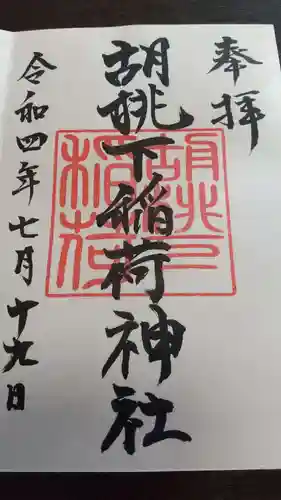 奉拝
胡桃下稲荷神社
胡桃下稲荷
令和四年七月十九日